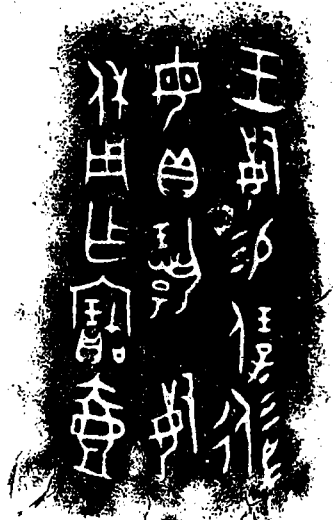 王姒易保侃
母貝揚姒
休用乍寶壺